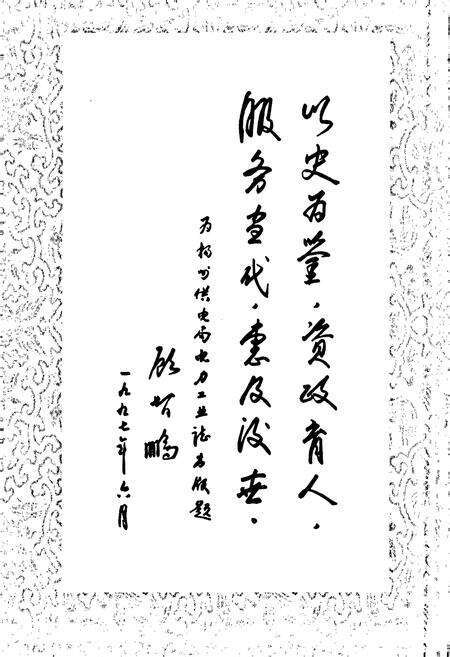 以史为鉴，资政育人，
服务当代，惠及后世。
为扬州供电局电力工业志出版题
顾智鹏
一九九七年六月